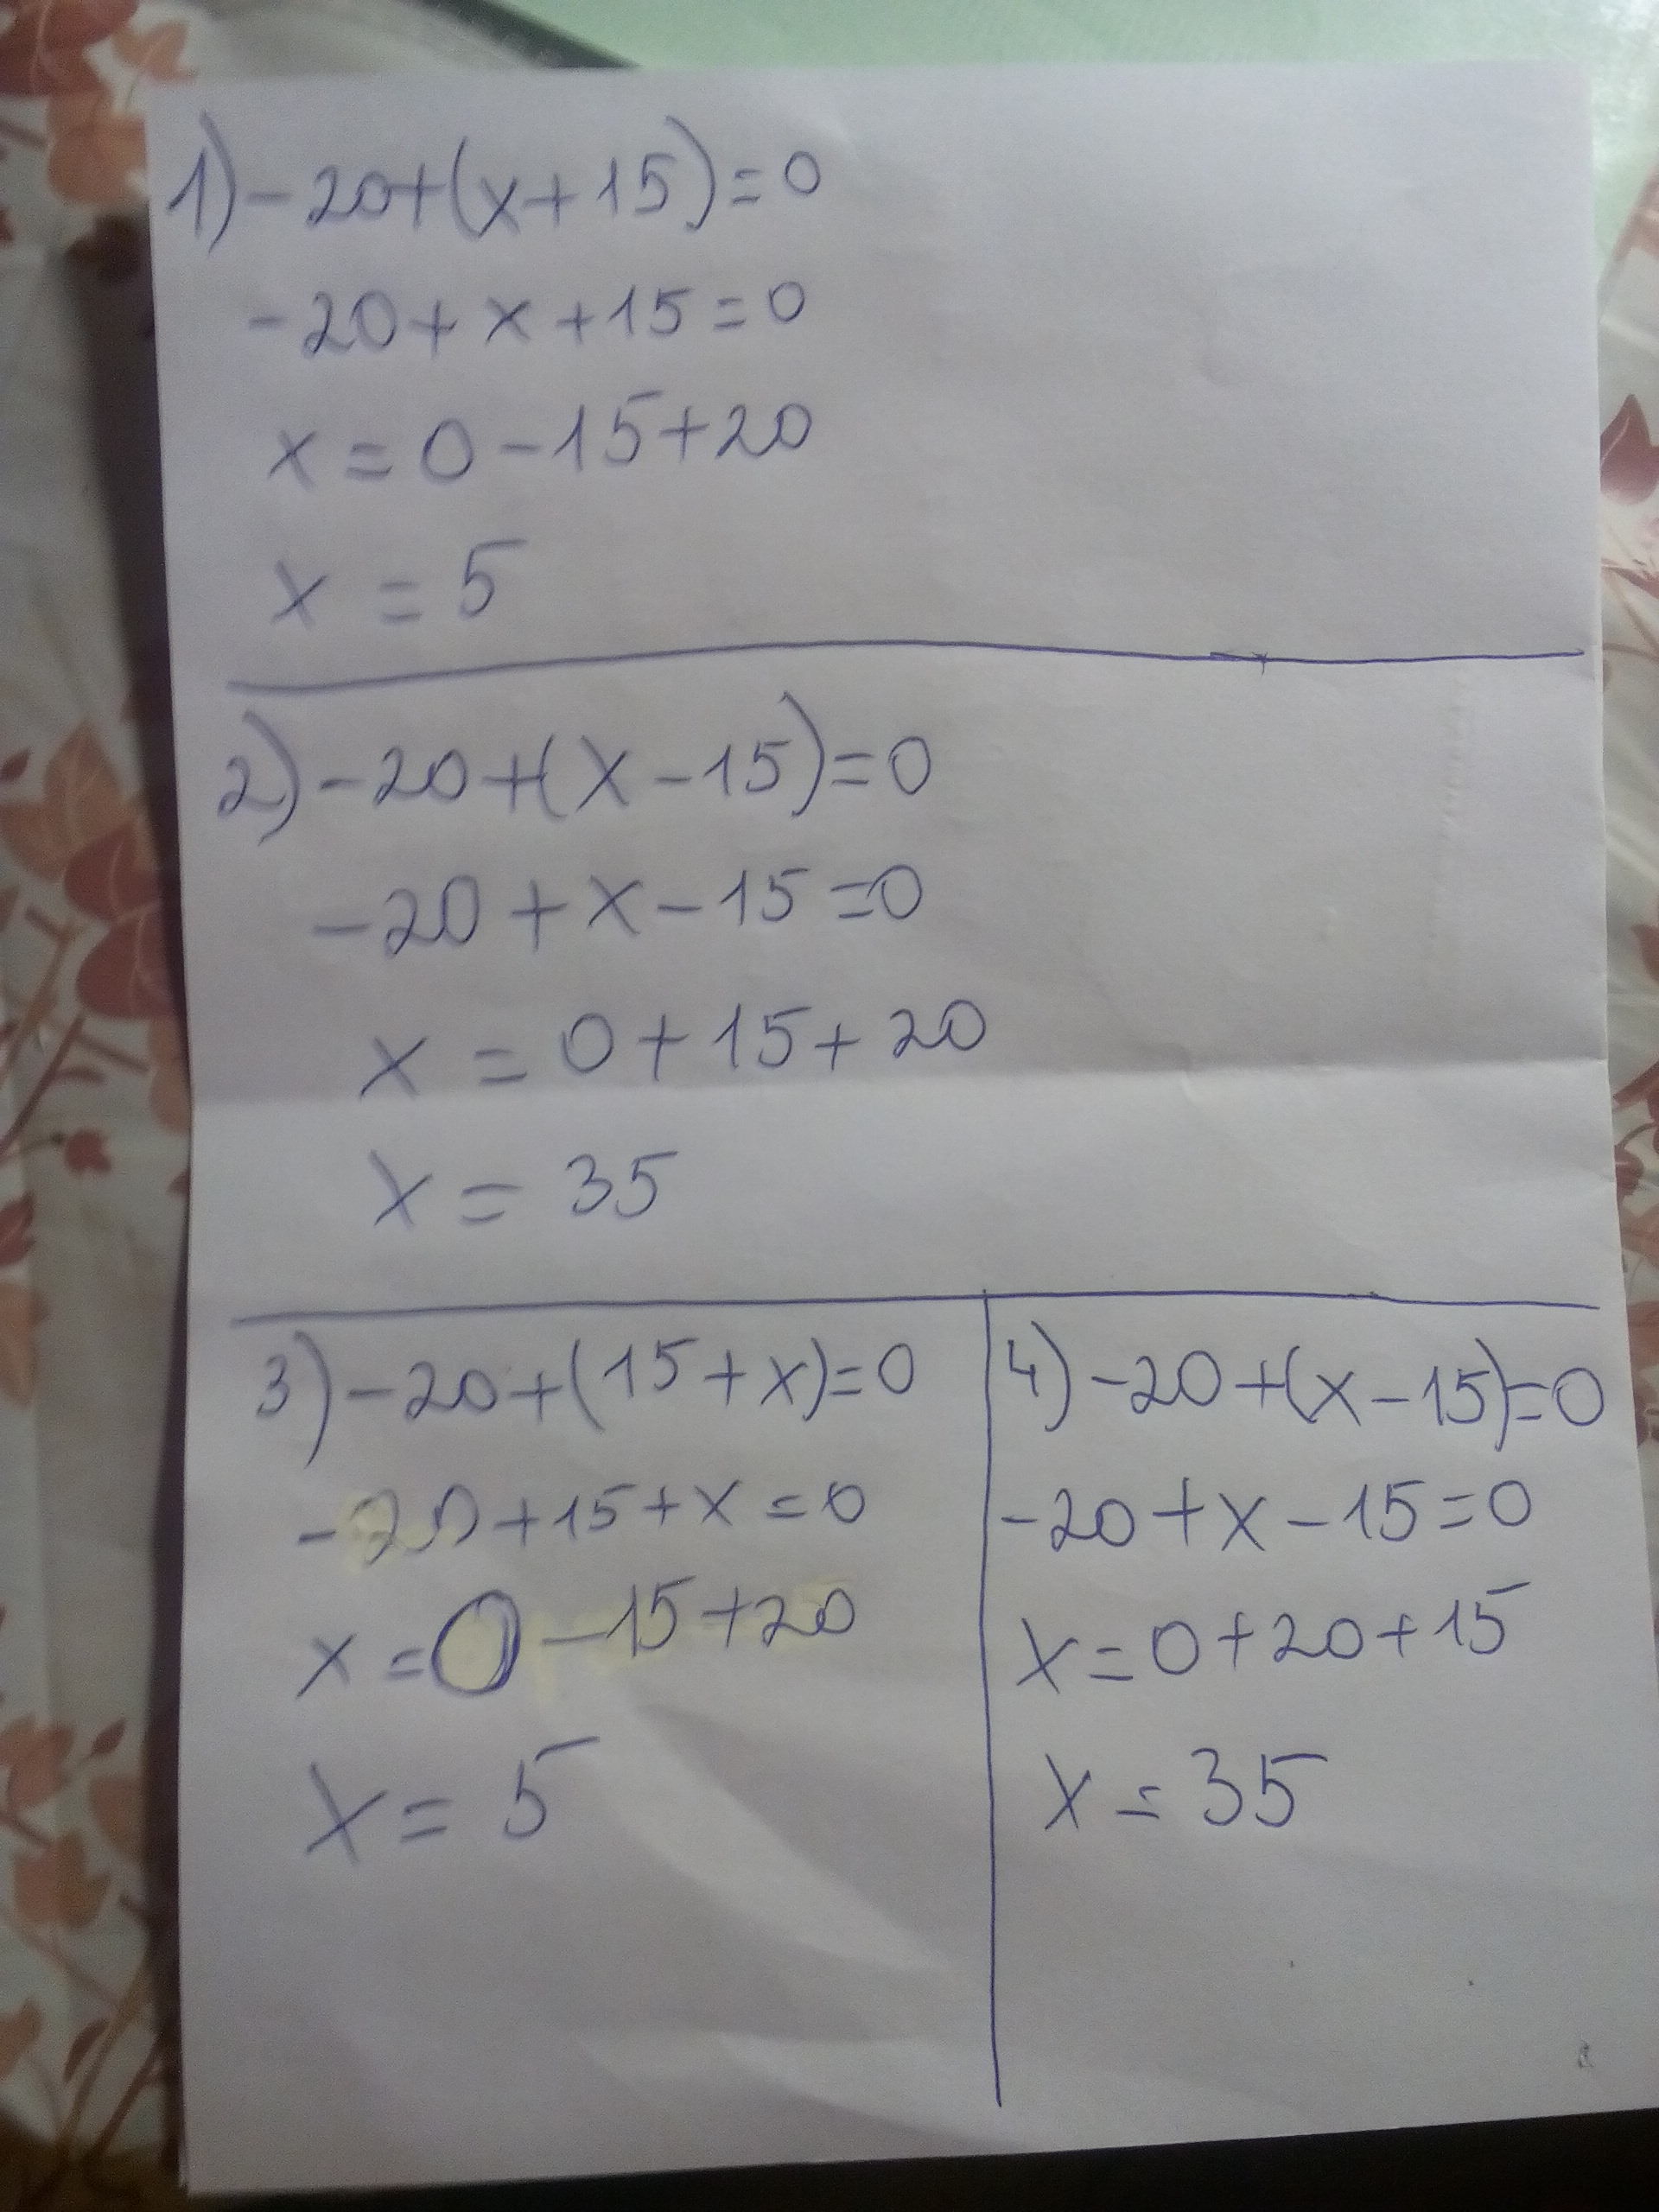 1) -20+(x+15)=0
-20+x+15=0
x=0-15+20
x=5
2) -20+(x-15)=0
-20+x-15=0
x=0+15+20
x=35
3) -20+(15+x)=0
-20+15+x=0
x=0-15+20
x=5
4) -20+(x-15)=0
-20+x-15=0
x=0+20+15
x=35